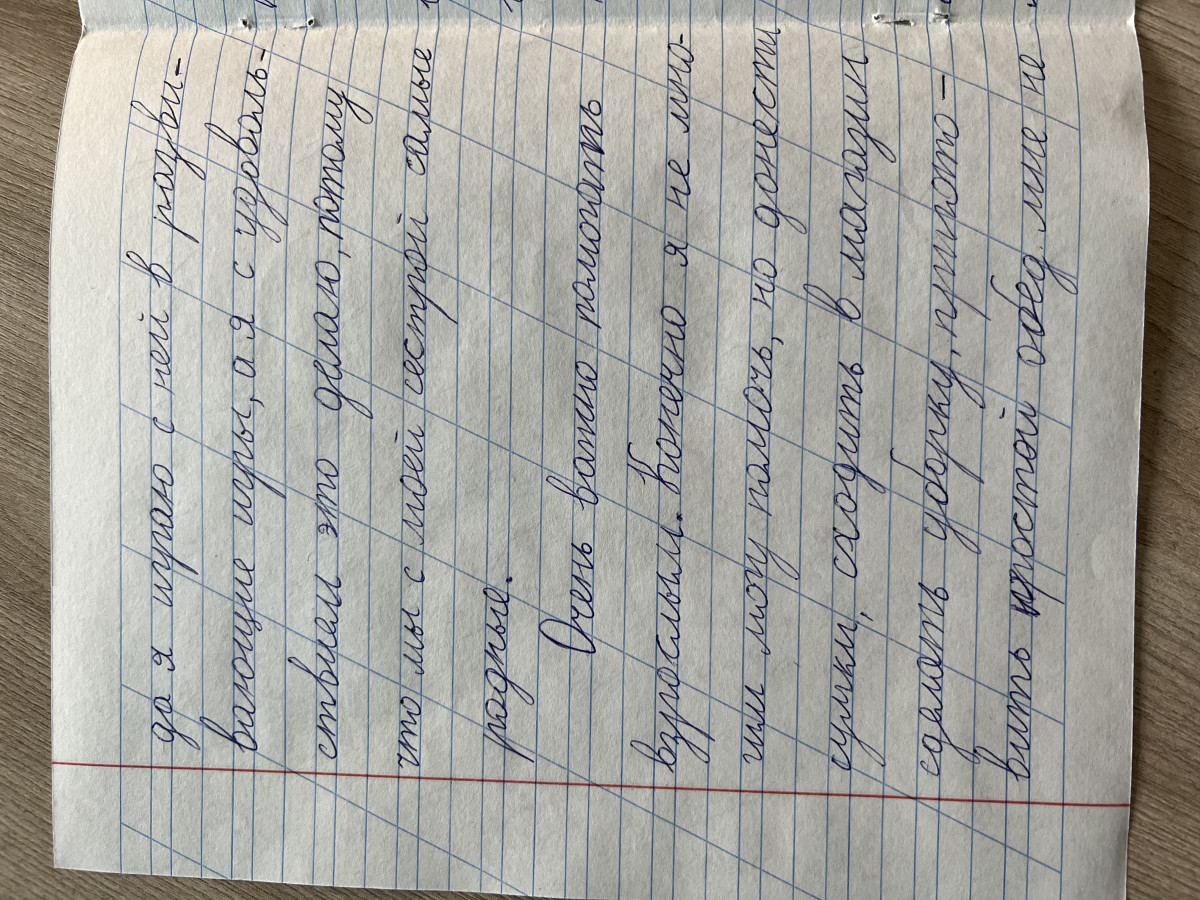 да я играю с ней в разви-
вающие игры, а я с удоволь-
ствием это делаю, потому
что мы с моей сестрой самые
родные.
Очень важно помогать
взрослым. Конечно я не мно-
гим могу помочь, но донести
сумки, сходить в магазин
сделать уборку, пригото-
вить простой обед мне не